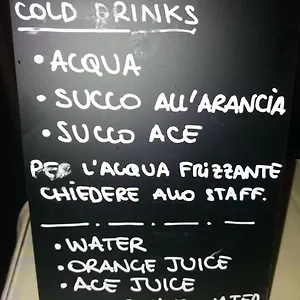 COLD DRINKS
• ACQUA
• SUCCO ALL'ARANCIA
• SUCCO ACE
PER L'ACQUA FRIZZANTE
CHIEDERE ALLO STAFF.
• WATER
• ORANGE JUICE
• ACE JUICE